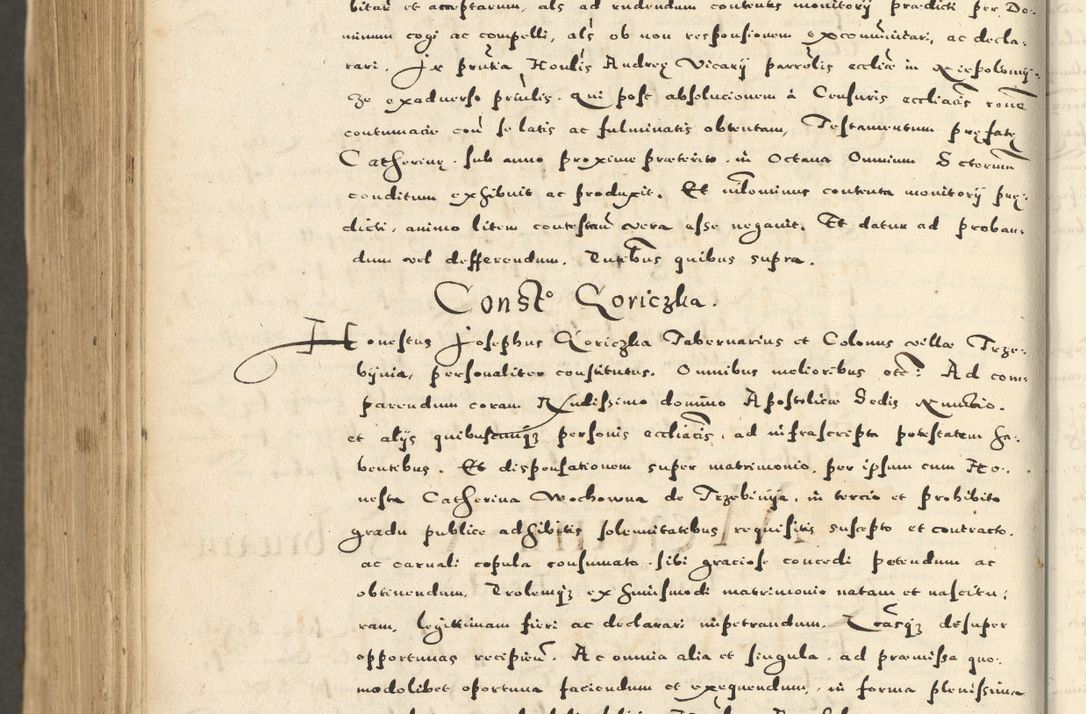 bitam et acceptarum, als ad reddendum contentis monitorÿ prædicti per Do-
minum cogi ac compelli, als ob non responsionem excommunicari, ac decla-
rari. In pñtia Honlis Andreę Vicarÿ parrolis ecclie in Niepolomÿ-
ze exaduerso prinlis. qui post absolucionem à Censuris eccliacis rone
contumacie con se latis ac fulminatis obtentam, Testamentum pręfatę
Catherinę. sub anno proxime præterito. in Octaua Omnium Sctorum
conditum exhibuit ac produxit. Et nilominus contenta monitorÿ prę-
dicti, animo litem contestan vera esse negauit. Et datur ad proban-
dum vel defferendum. Ptibus quibus supra.
Constᵒ Goriczka.
Honestus Josephus Goriczka Tabernarius et Colonus villæ Trze-
bÿnia, personaliter constitutus. Omnibus melioribus etc: Ad com-
parendum coram Rndissimo domino Apostolicæ Sedis Nuncio.
et alÿs quibuscunqȝ personis eccliacis, ad infrascripta potestatem ha-
bentibus. Et dispensationem super matrimonio. per ipsum cum Ho-
nesta Catherina Wochowna de Trzebinÿa. in tercio et prohibito
gradu publice adhibitis solennitatibus requisitis suscepto et contracto.
ac carnali copula consumato. sibi graciose concedi petendum ac
obtinendum. Prolemqȝ ex huiusmodi matrimonio natam et nascitu-
ram, legittimam fieri ac declarari impetrandum. Lrasqȝ desuper
opportunas recipien. Ac omnia alia et singula. ad præmissa quo-
modolibet oportuna faciendum et exequendum, in forma plenissima